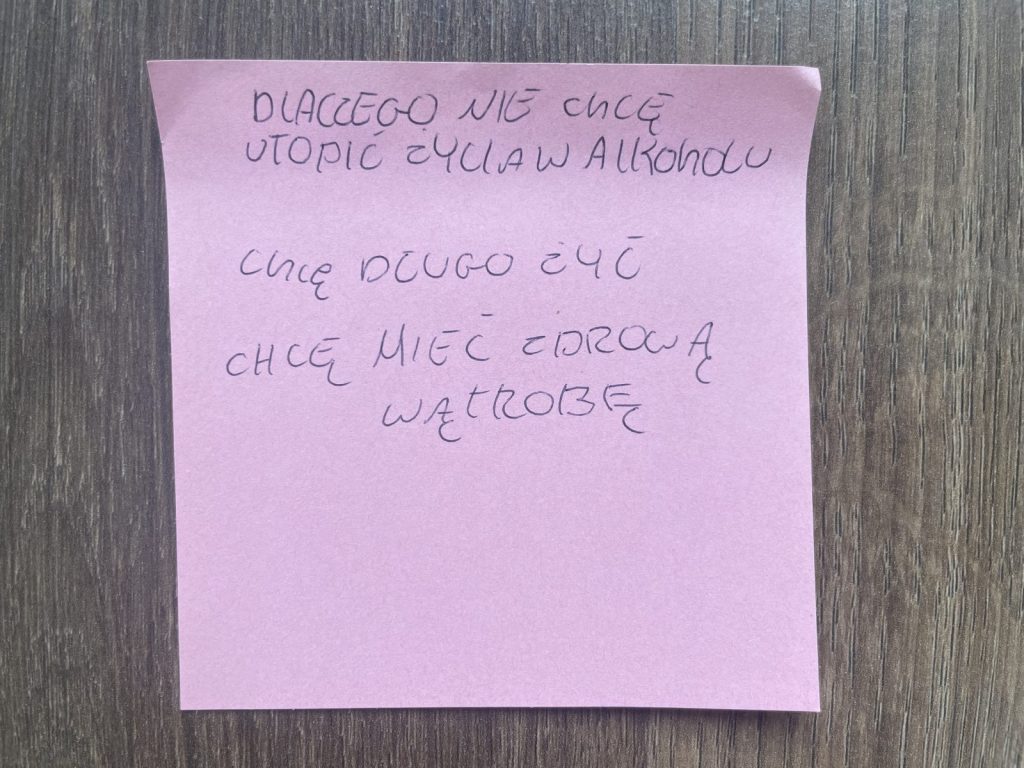 DLACZEGO NIE CHCĘ
UTOPIĆ ŻYCIA W ALKOHOLU
CHCĘ DŁUGO ŻYĆ
CHCĘ MIEĆ ZDROWĄ
WĄTROBĘ